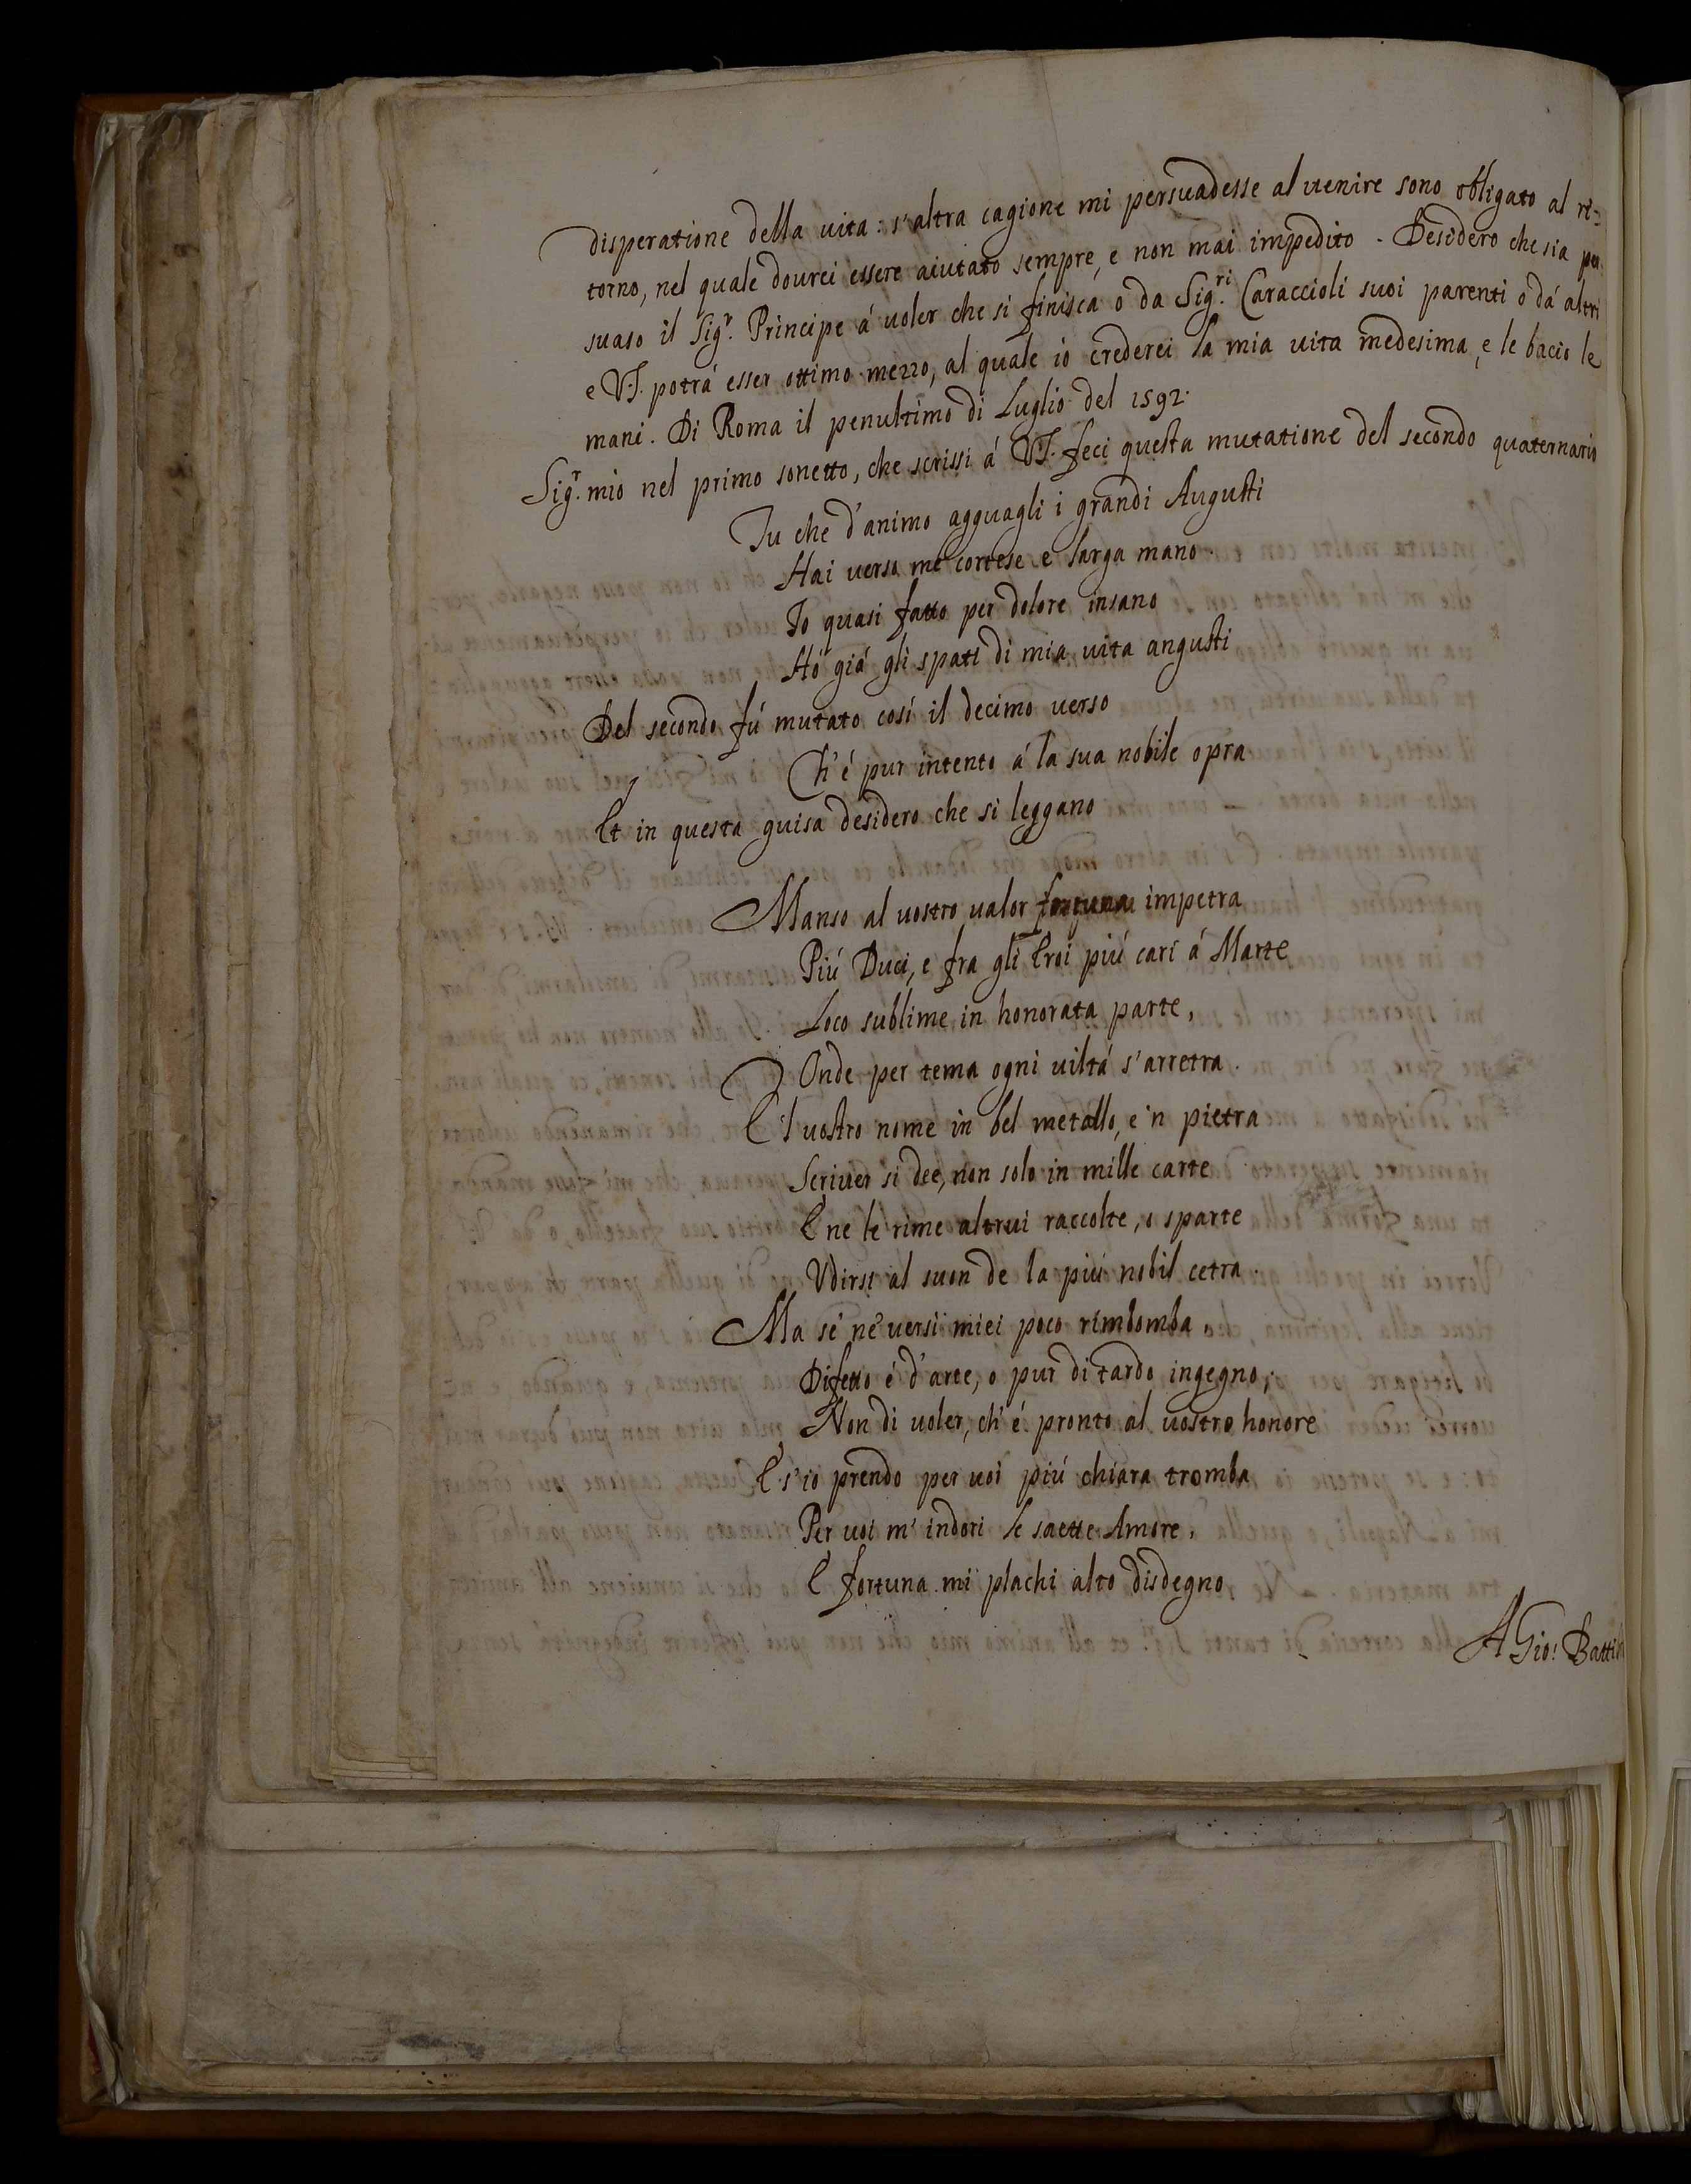 disperatione della uita: s'altra cagione mi persuadesse al uenire sono obligato al ri=
torno, nel quale dourei essere aiutato sempre, e non mai impedito. Desidero che sia per
suaso il Sig.r Principe á uoler che si finisca o da Sig.ri Caraccioli suoi parenti o dá altri
e V.S. potrá esser ottimo mezzo, al quale io crederei la mia uita medesima, e le bacio le
mani. Di Roma il penultimo di Luglio del 1592.
Sig.r mio nel primo sonetto, che scrissi á V.S. feci questa mutatione del secondo quaternario
Tu che d'animo agguagli i grandi Augusti
Hai uerso me cortese e larga mano.
Io quasi fatto per dolore insano
Hó giá gli spati di mia uita angusti
Del secondo fú mutato cosí il decimo uerso
Ch'é pur intento á la sua nobile opra
Et in questa guisa desidero che si leggano
Manso al uostro ualor fortuna impetra
Piú Duci, e fra gli Eroi piú cari á Marte
Loco sublime in honorata parte,
Onde per tema ogni uiltá s'arretra.
E 'l uostro nome in bel metallo, e 'n pietra
Scriuer si dee, non solo in mille carte
E ne le rime altrui raccolte, o sparte
Vdirsi al suon de la piú nobil cetra.
Ma se ne' uersi miei poco rimbomba,
Difetto é d'arte, o pur di tardo ingegno;
Non di uoler, ch'é pronto al uostro honore
E s'io prendo per uoi piú chiara tromba
Per uoi m'indori le saette Amore,
E fortuna mi plachi alto disdegno
A Gio: Battis